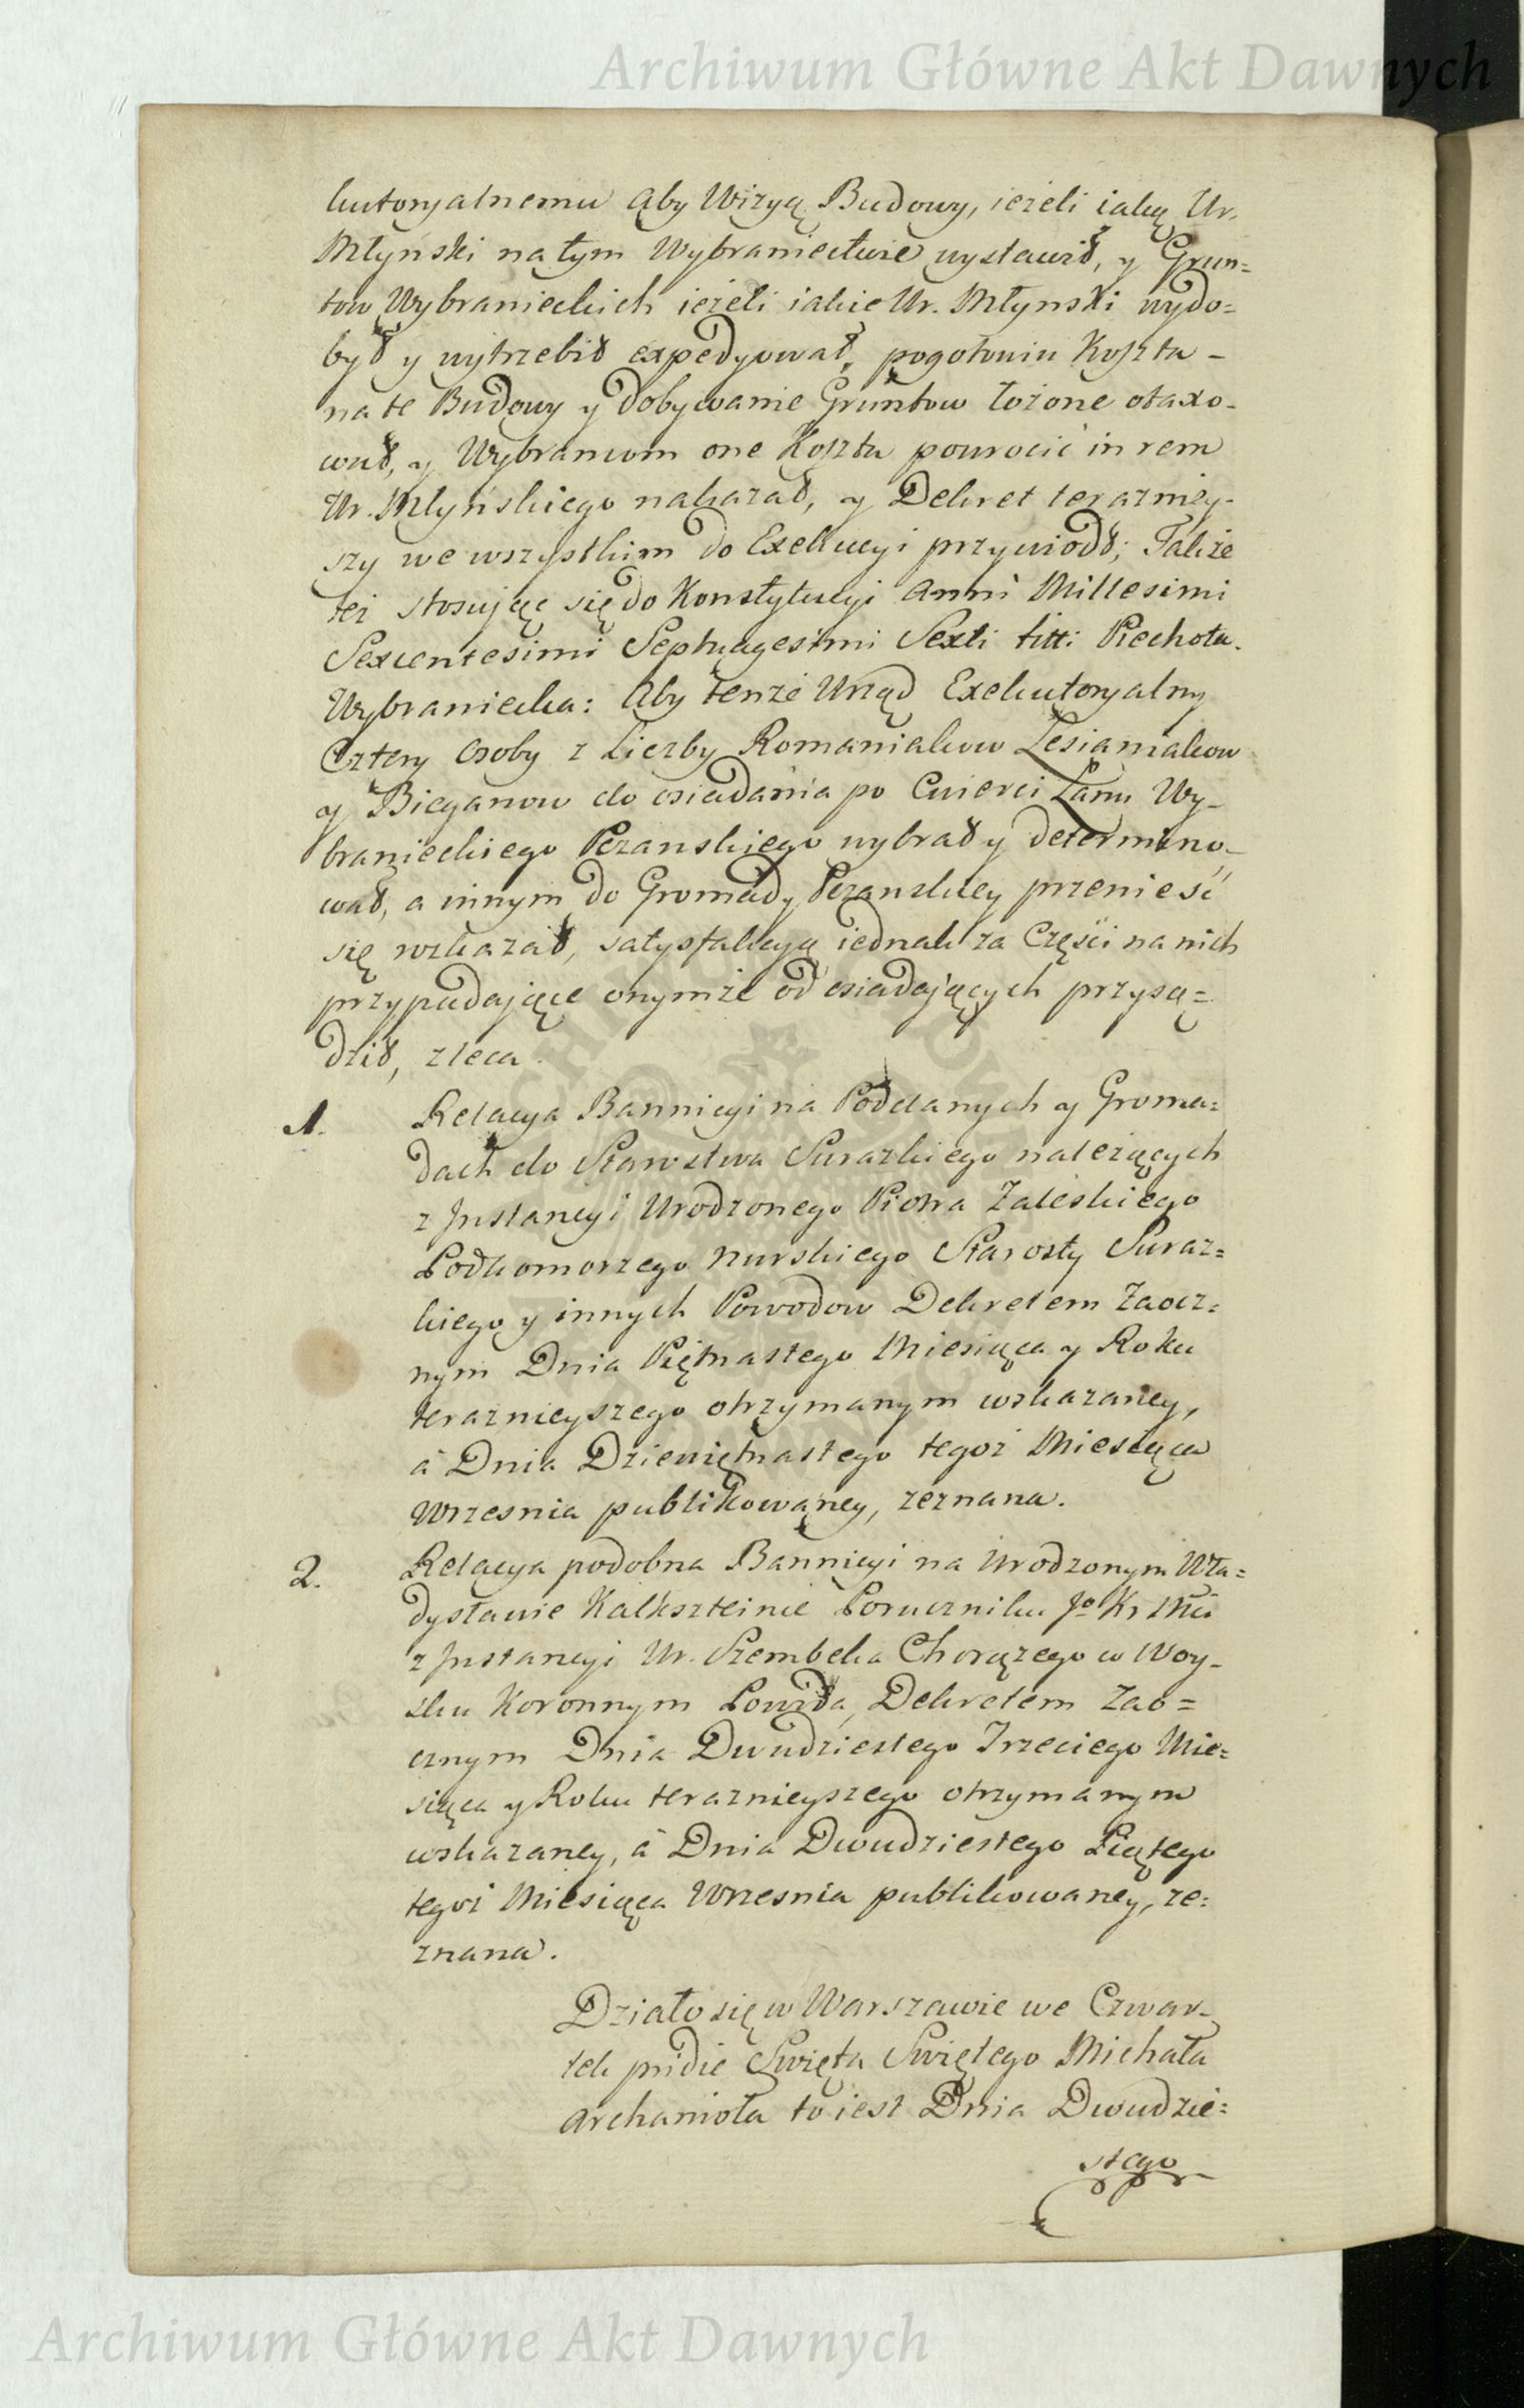 Archiwum Główne Akt Dawnych
kutoryalnemu aby Wizyą Budowy, ieżeli iaką Ur.
Młynski na tym Wybraniectwie wystawił, y Grun=
tow Wybranieckich ieżeli iakie Ur. Młynski wydo=
był y wytrzebił expedyował, pogotowiu Koszta -
na te Budowy y dobywanie Gruntow łożone otaxo-
wał, y Wybrancom one Koszta powrocić in rem
Ur. Młyńskiego nakazał, y Dekret terazniey-
szy we wszystkim do Exekucyi przywiodł; Także
też stosując się do Konstytucyi Anni Millesimi
Sexcentesimi Septuagesimi Sexti titt: Piechota
Wybraniecka: Aby tenże Urząd Exekutoryalny
Cztery Osoby z Liczby Romaniakow Lesianiakow
y Bieganow do osiadania po Cwierci Łanu Wy-
branieckiego Pezanskiego wybrał y determino-
wał, a innym do Gromady Pezanskiey przenieść
się rozkazał, satysfakcyą iednak za Części na nich
przypadające onymże od osiadających przysą=
dził, zleca.
1. Relacya Bannicyi na Poddanych y Groma=
dach do Starostwa Surazkiego należących
z Jnstancyi Urodzonego Piotra Zaleskiego
Podkomorzego Nurskiego Starosty Suraz=
kiego y innych Powodow Dekretem Zaocz=
nym Dnia Piętnastego Miesiąca y Roku
terazniejszego otrzymanym wskazaney,
à Dnia Dziewiętnastego tegoż Miesiąca
Wrzesnia publikowaney, zeznana.
2. Relacya podobna Bannicyi na Urodzonym Wła=
dysławie Kalkszteinie Poruczniku Jo Kr Mci
z Jnstancyi Ur. Szembeka Chorążego w Woy-
sku Koronnym Powoda, Dekretem Zao=
cznym Dnia Dwudziestego Trzeciego Mie=
siąca y Roku terazniejszego otrzymanym
wskazaney, à Dnia Dwudziestego Piątego
tegoż Miesiąca Wrzesnia publikowaney, ze=
znana.
Działo się w Warszawie we Czwar-
tek pridie Swięta Swiętego Michała
Archanioła to iest Dnia Dwudzie=
stego
Archiwum Główne Akt Dawnych